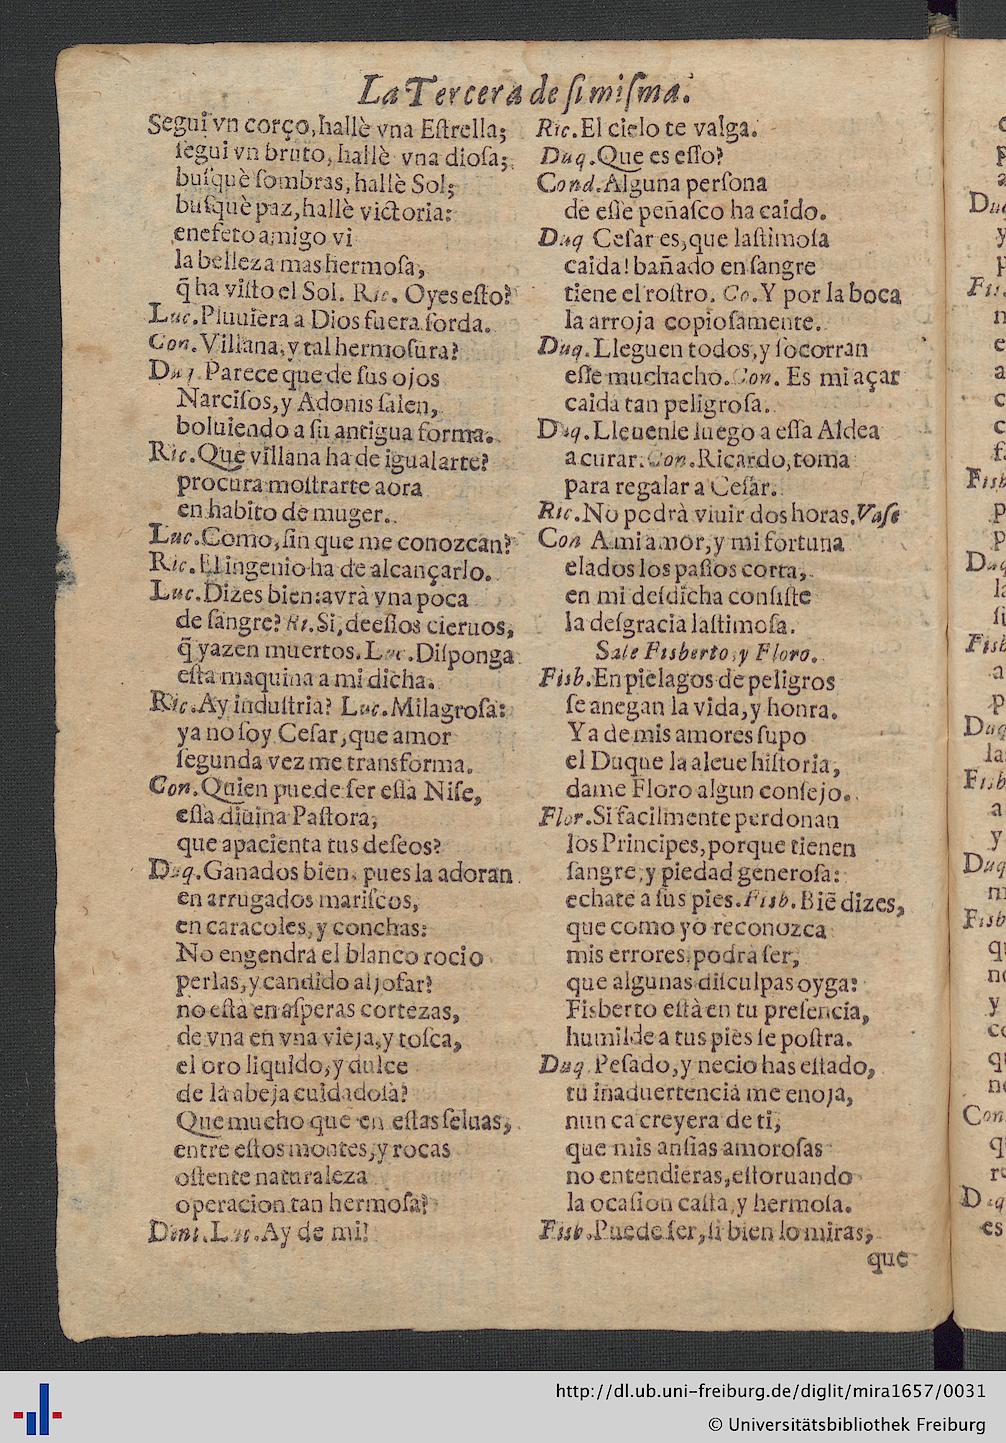 La Tercera de ſi miſma.
Segui vn corço, hallè vna Eſtrella;
ſegui vn bruto, hallè vna dioſa;
buſquè ſombras, hallè Sol;
buſquè paz, hallè victoria:
enefeto amigo vi
la belleza mas hermoſa,
q̃ ha viſto el Sol. Ric. Oyes eſto?
Luc. Pluuiera a Dios fuera ſorda.
Con. Villana, y tal hermoſura?
Duq. Parece que de ſus ojos
Narciſos, y Adonis ſalen,
boluiendo a ſu antigua forma.
Ric. Que villana ha de igualarte?
procura moſtrarte aora
en habito de muger.
Luc. Como, ſin que me conozcan?
Ric. El ingenio ha de alcançarlo.
Luc. Dizes bien: avrà vna poca
de ſangre? Ri. Si, de eſſos cieruos,
q̃ yazen muertos. Luc. Diſponga
eſta maquina a mi dicha.
Ric. Ay induſtria? Luc. Milagroſa:
ya no ſoy Ceſar, que amor
ſegunda vez me transforma.
Con. Quien puede ſer eſſa Niſe,
eſſa diuina Paſtora,
que apacienta tus deſeos?
Duq. Ganados bien, pues la adoran
en arrugados mariſcos,
en caracoles, y conchas:
No engendra el blanco rocio
perlas, y candido aljofar?
no eſtà en aſperas cortezas,
de vna en vna vieja, y toſca,
el oro liquido, y dulce
de la abeja cuidadoſa?
Que mucho que en eſtas ſeluas,
entre eſtos montes, y rocas
oſtente naturaleza
operacion tan hermoſa?
Dent. Luc. Ay de mi!
Ric. El cielo te valga.
Duq. Que es eſſo?
Cond. Alguna perſona
de eſſe peñaſco ha caido.
Duq Ceſar es, que laſtimoſa
caida! bañado en ſangre
tiene el roſtro. Co. Y por la boca
la arroja copioſamente.
Duq. Lleguen todos, y ſocorran
eſſe muchacho. Con. Es mi açar
caida tan peligroſa.
Duq. Lleuenle luego a eſſa Aldea
a curar. Con. Ricardo, toma
para regalar a Ceſar.
Ric. No podrà viuir dos horas. Vaſe
Con A mi amor, y mi fortuna
elados los paſſos corta,
en mi deſdicha conſiſte
la deſgracia laſtimoſa.
Sale Fisberto, y Floro.
Fisb. En pielagos de peligros
ſe anegan la vida, y honra.
Ya de mis amores ſupo
el Duque la aleue hiſtoria,
dame Floro algun conſejo.
Flor. Si facilmente perdonan
los Principes, porque tienen
ſangre, y piedad generoſa:
echate a ſus pies. Fisb. Biẽ dizes,
que como yo reconozca
mis errores, podrà ſer,
que algunas diſculpas oyga:
Fisberto eſtà en tu preſencia,
humilde a tus pies ſe poſtra.
Duq. Peſado, y necio has eſtado,
tu inaduertencia me enoja,
nun ca creyera de ti,
que mis anſias amoroſas
no entendieras, eſtoruando
la ocaſion caſta, y hermoſa.
Fisb. Puede ſer, ſi bien lo miras,
que
http://dl.ub.uni-freiburg.de/diglit/mira1657/0031
© Universitätsbibliothek Freiburg